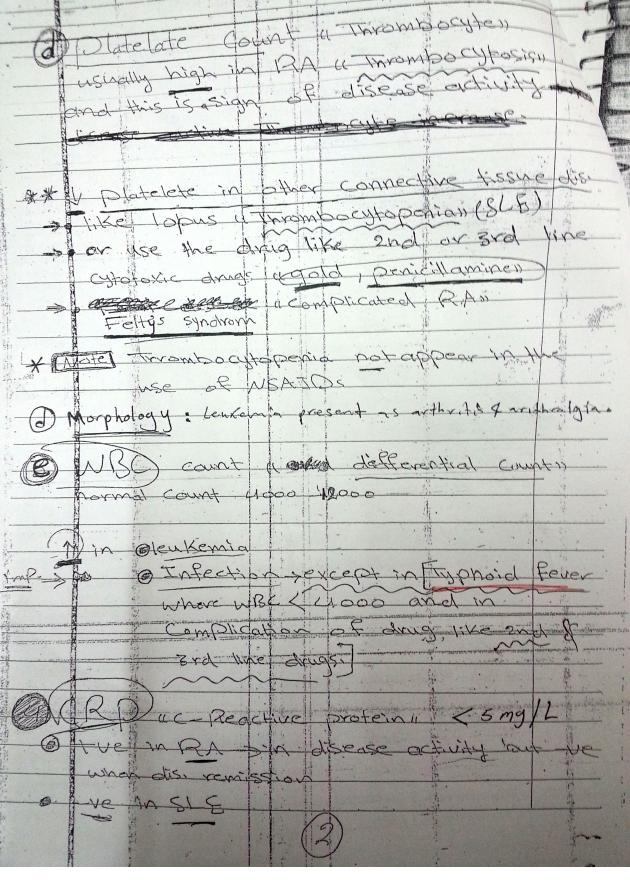 (d) Platelate Count «Thrombocyte»
usually high in RA «Thrombocytosis»
and this is sign of disease activity
** ↓ platelete in other connective tissue dis.
→ like lopus «Thrombocytopenia» (SLE)
→ or use the drug like 2nd or 3rd line
cytotoxic drugs «gold, penicillamine»
→ «complicated RA»
Felty's syndrom
* Note Thrombocytopenia not appear in the
use of NSAIDs
(d) Morphology : Leukemia present as arthritis & arthralgia.
(e) WBC count « differential count»
normal count 4000 12000
↑ in leukemia
Imp. → Infection → except in [Typhoid fever
where WBC < 4000 and in
Complication of drug, like 2nd &
3rd line drugs.]
CRP «C-Reactive protein» < 5 mg/L
+ve in RA → in disease activity but -ve
when dis. remission
-ve in SLE
2